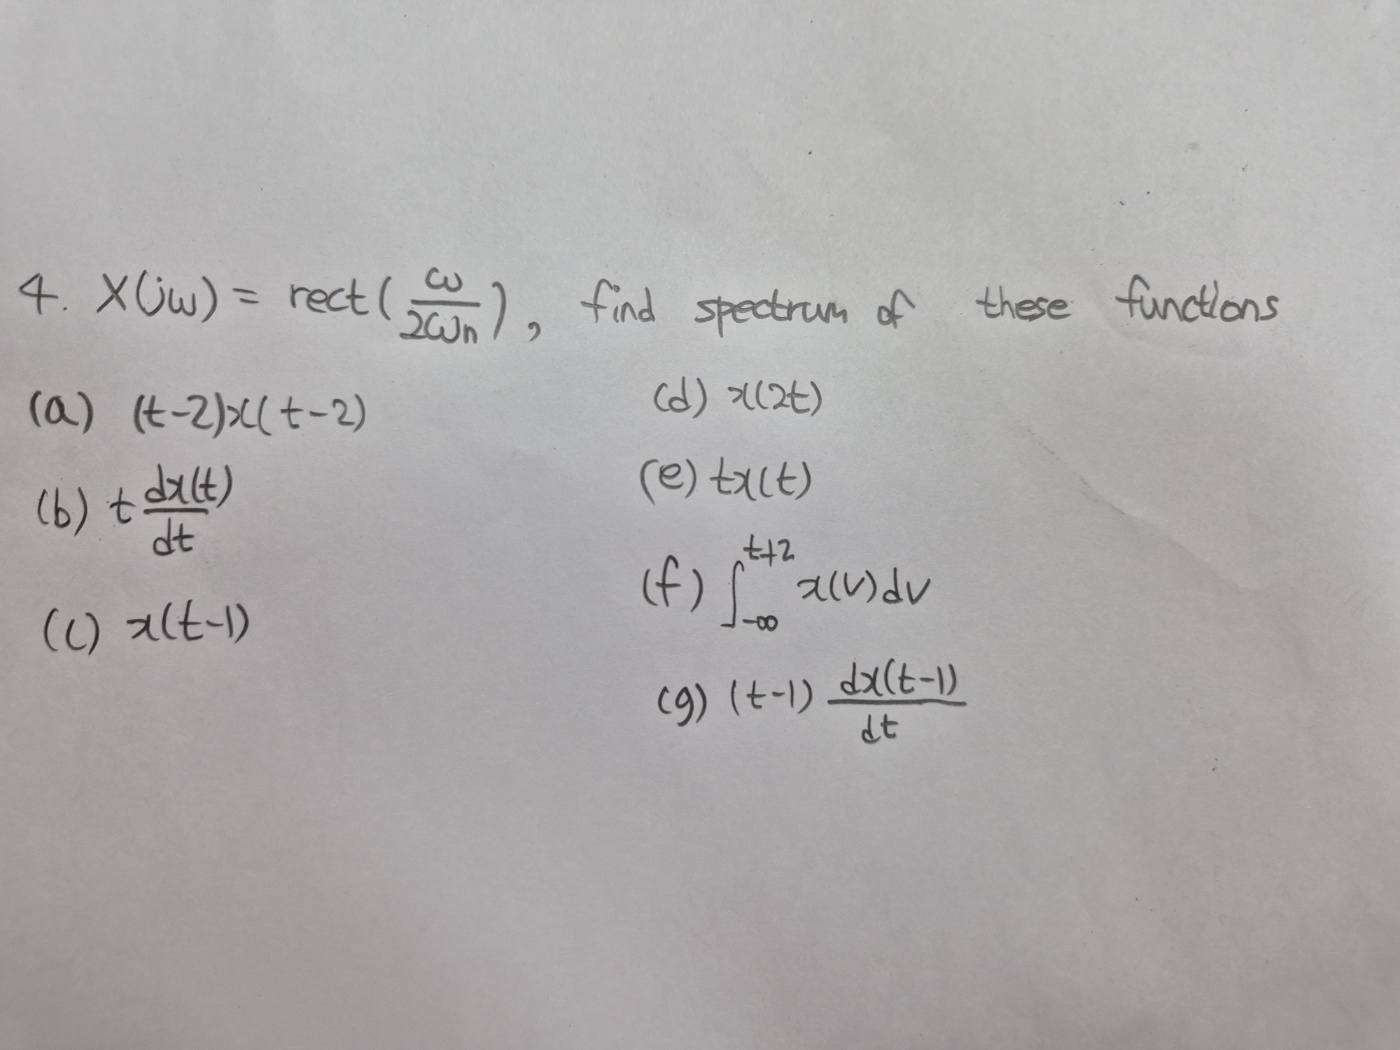 4. X(jω) = rect(ω/2ωn), find spectrum of these functions
(a) (t-2)x(t-2)
(b) t dx(t)/dt
(c) x(t-1)
(d) x(2t)
(e) tx(t)
(f) ∫_{-∞}^{t+2} x(v)dv
(g) (t-1) dx(t-1)/dt